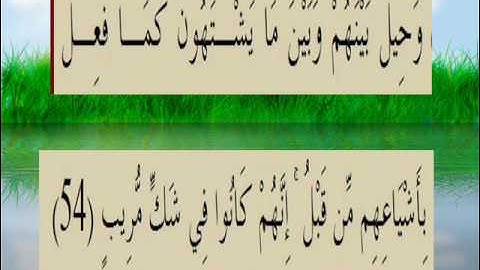 وَحِيلَ بَيْنَهُمْ وَبَيْنَ مَا يَشْتَهُونَ كَمَا فُعِلَ
بِأَشْيَاعِهِم مِّن قَبْلُ ۚ إِنَّهُمْ كَانُوا فِي شَكٍّ مُّرِيبٍ (54)